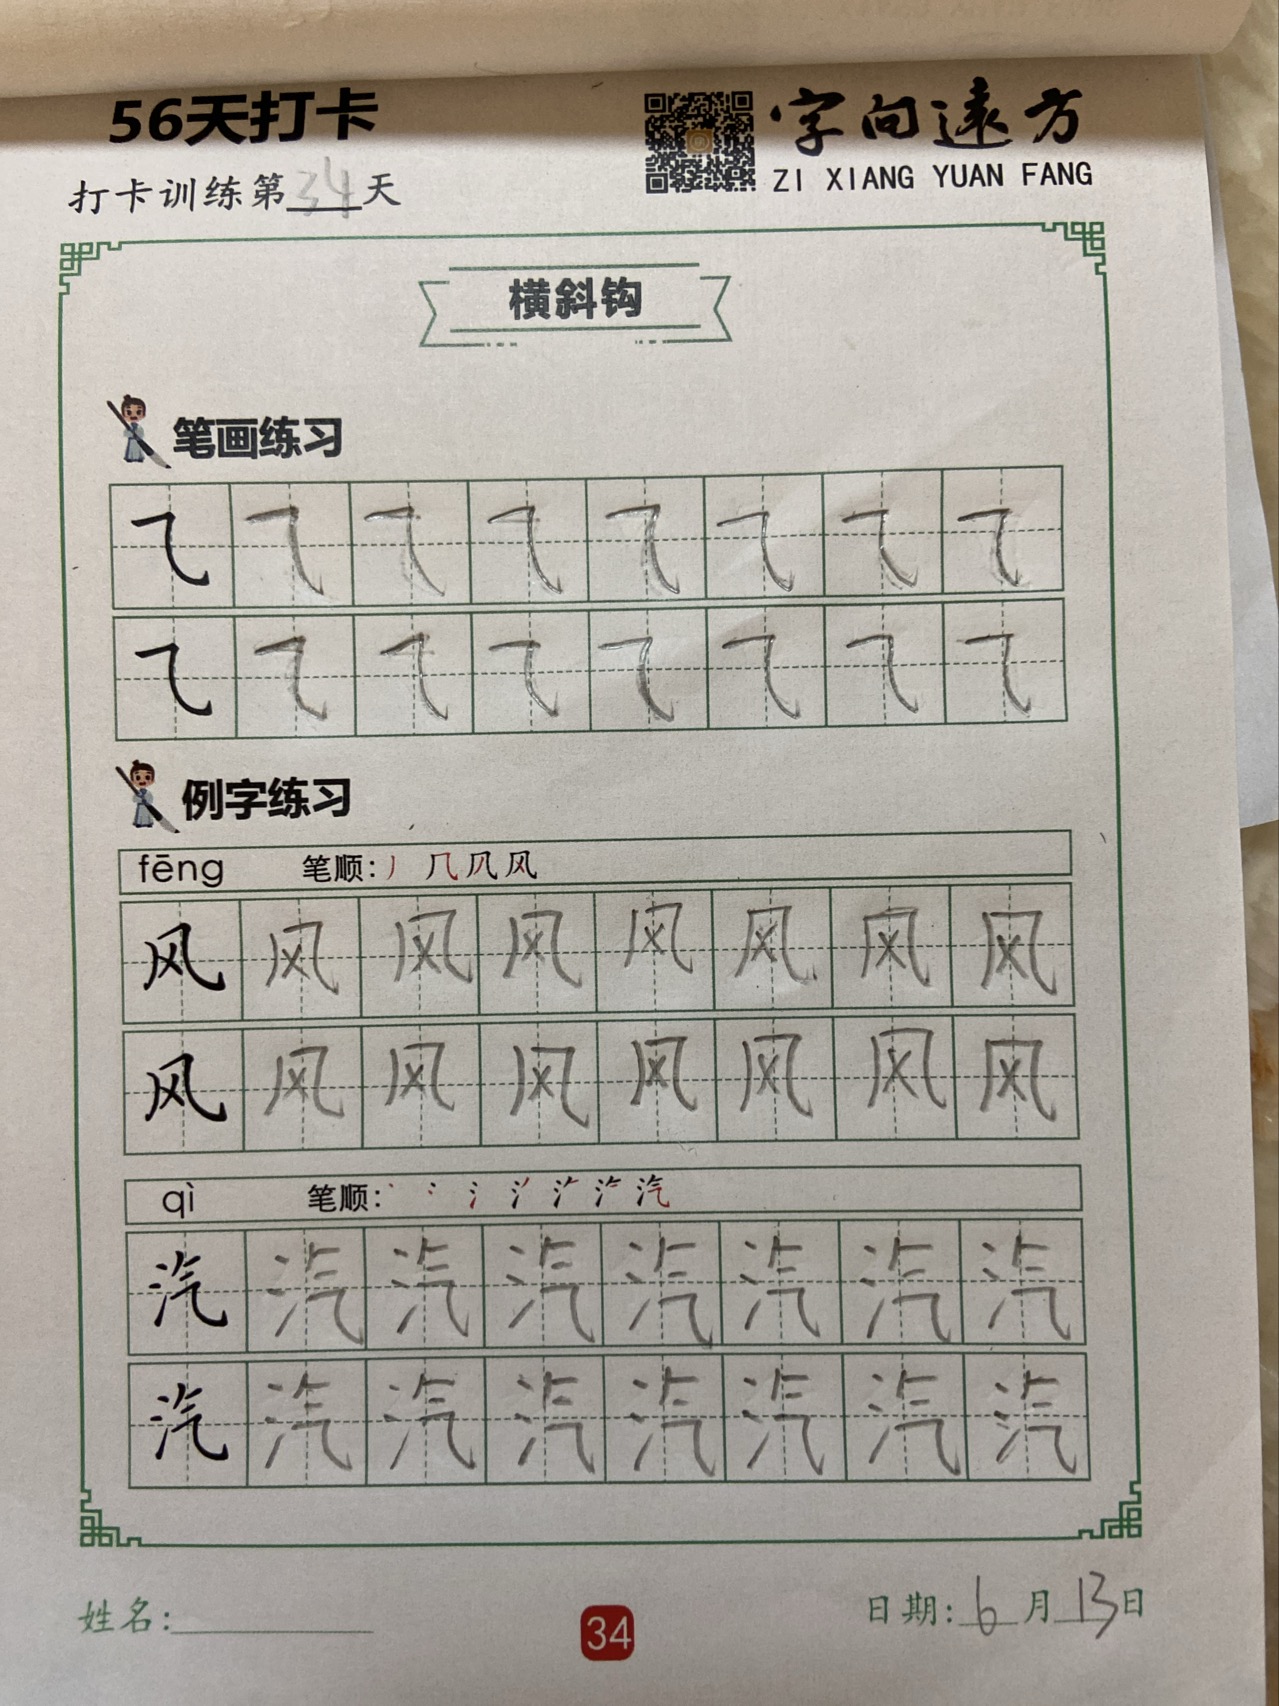 56天打卡
字向远方
ZI XIANG YUAN FANG
打卡训练第34天
横斜钩
笔画练习
㇈ ㇈ ㇈ ㇈ ㇈ ㇈ ㇈ ㇈
㇈ ㇈ ㇈ ㇈ ㇈ ㇈ ㇈ ㇈
例字练习
fēng 笔顺: 丿 几 凡 风
风 风 风 风 风 风 风 风
风 风 风 风 风 风 风 风
qì 笔顺: 丶 冫 氵 汽
汽 汽 汽 汽 汽 汽 汽 汽
汽 汽 汽 汽 汽 汽 汽 汽
姓名:
34
日期: 6 月 13 日